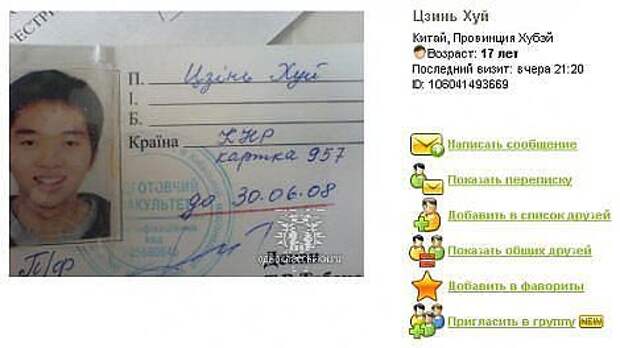 П. Цзінь Хуй
І.
Б.
Країна КНР
картка 957
до 30.06.08
П/Ф
одноклассники.ru
Цзинь Хуй
Китай, Провинция Хубэй
Возраст: 17 лет
Последний визит: вчера 21:20
ID: 106041493669
Написать сообщение
Показать переписку
Добавить в список друзей
Показать общих друзей
Добавить в фавориты
Пригласить в группу NEW